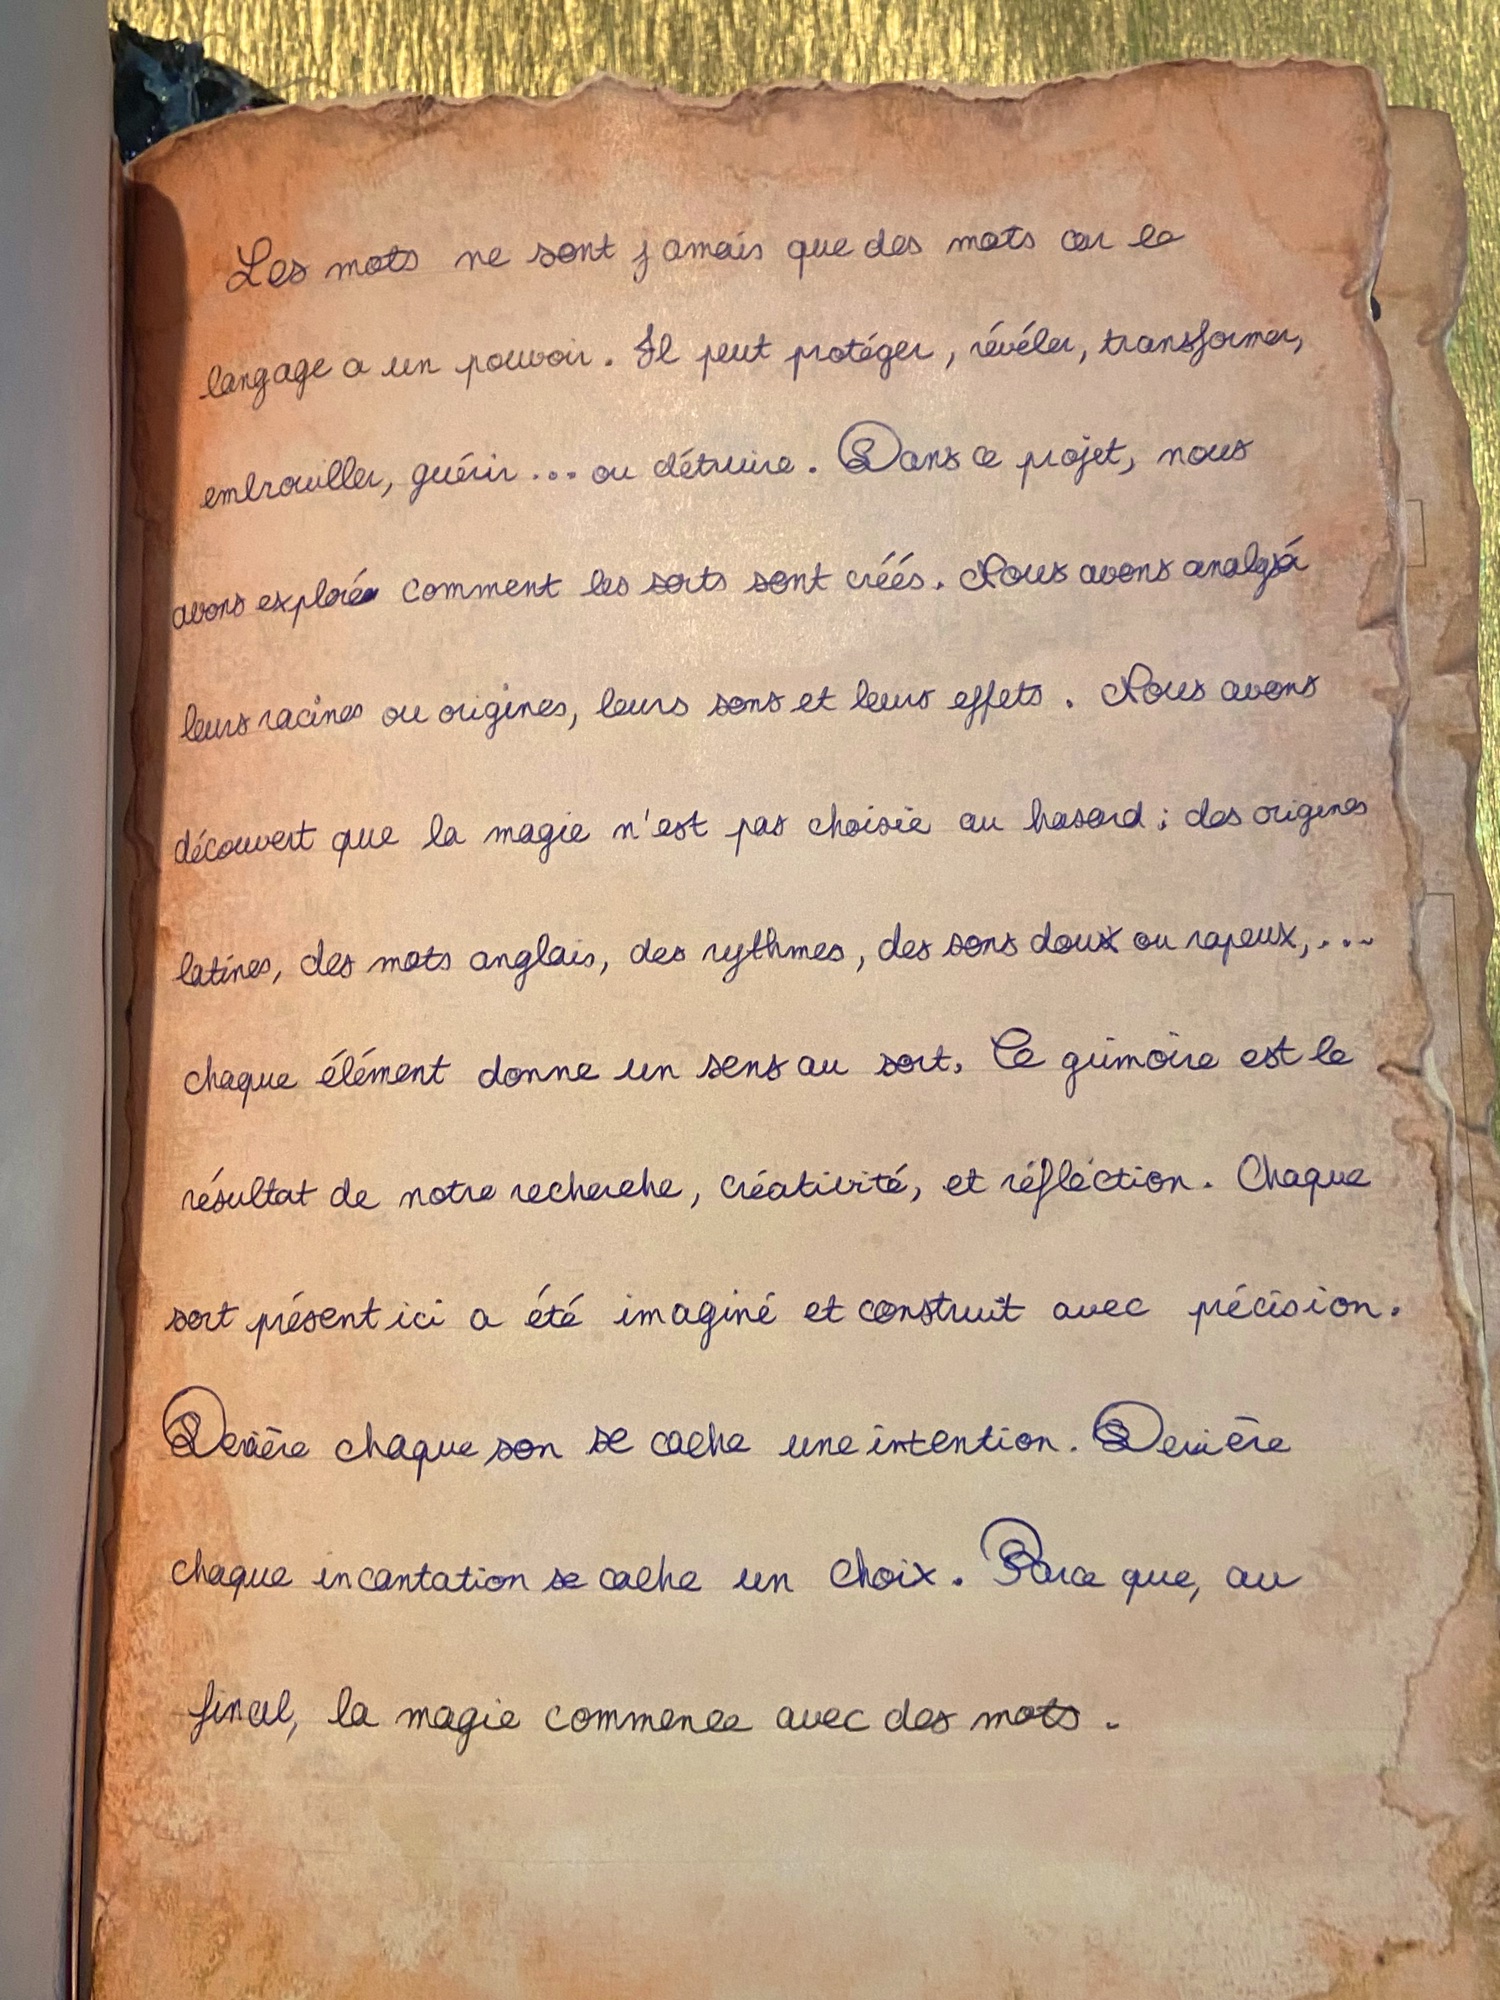 Les mots ne sont jamais que des mots car le
langage a un pouvoir. Il peut protéger, révéler, transformer,
embrouiller, guérir... ou détruire. Dans ce projet, nous
avons exploré comment les sorts sont créés. Nous avons analysé
leurs racines ou origines, leurs sons et leurs effets. Nous avons
découvert que la magie n'est pas choisie au hasard ; des origines
latines, des mots anglais, des rythmes, des sons doux ou rapeux,...
chaque élément donne un sens au sort. Ce grimoire est le
résultat de notre recherche, créativité, et réfléction. Chaque
sort présent ici a été imaginé et construit avec précision.
Derrière chaque son se cache une intention. Derrière
chaque incantation se cache un choix. Parce que, au
final, la magie commence avec des mots.